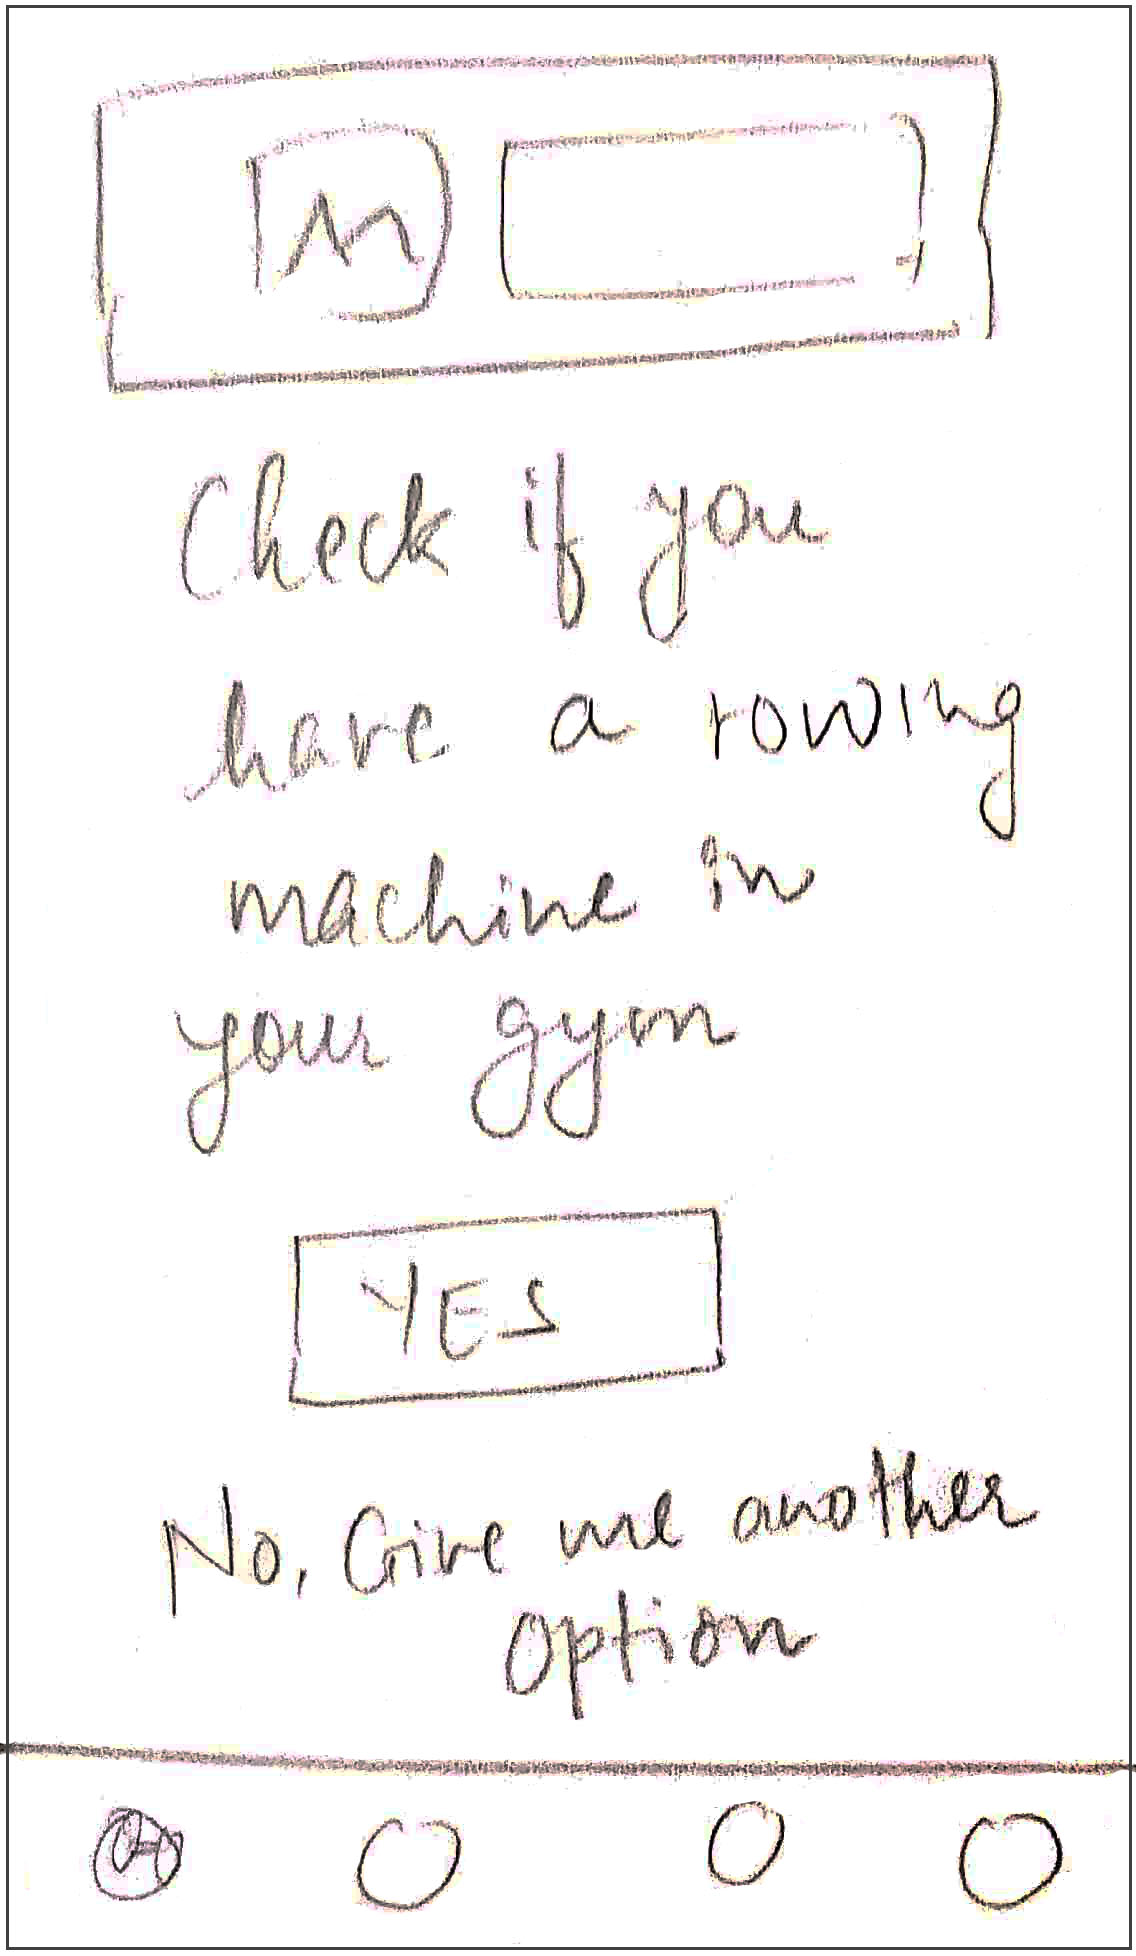 Check if you
have a rowing
machine in
your gym
YES
No, Give me another
option